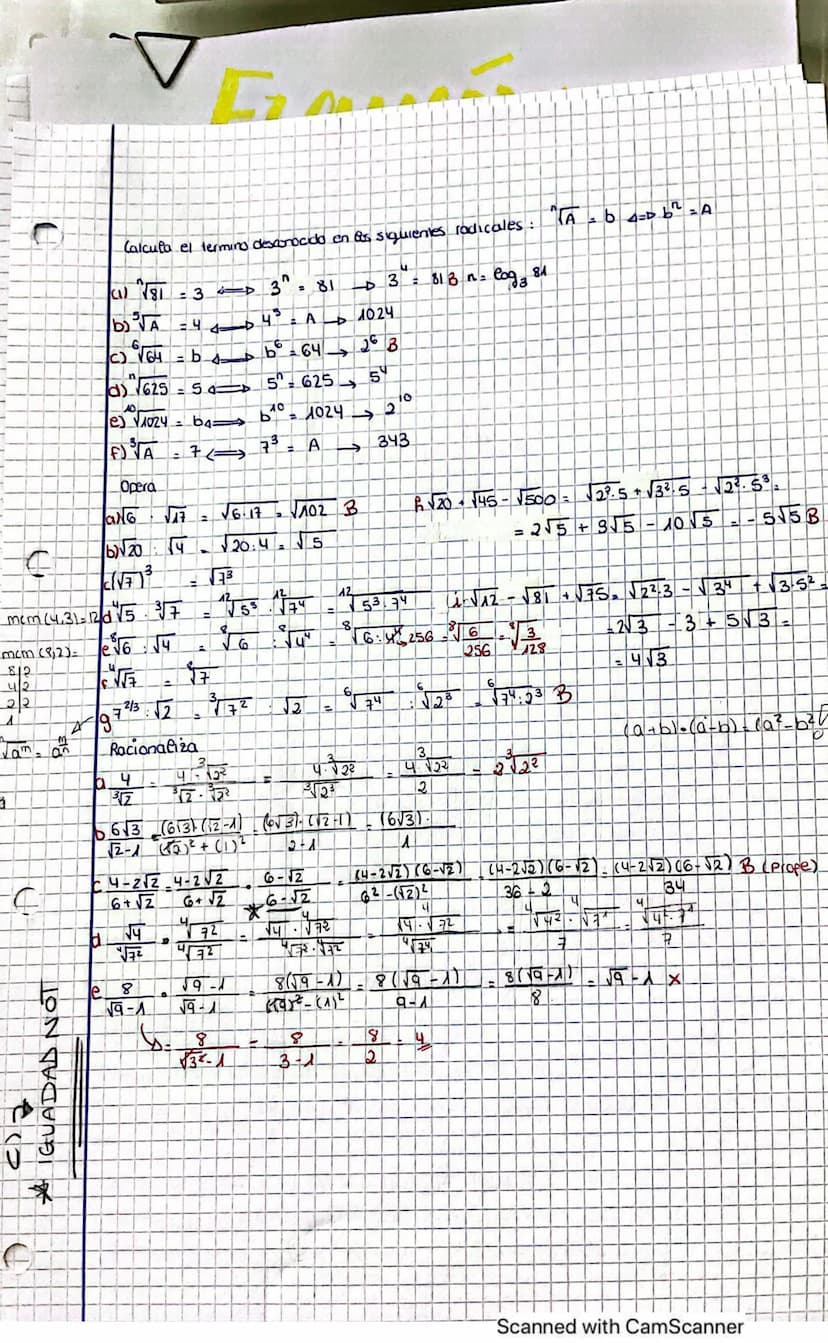 Examen
Calcula el termino desconocido en los siguientes radicales: ⁿ√A = b ⟺ bⁿ = A
a) ⁿ√81 = 3 ⟺ 3ⁿ = 81 → 3⁴ = 81 B n = log₃ 81
b) ⁵√A = 4 ⟺ 4⁵ = A → 1024
c) ⁶√64 = b ⟺ b⁶ = 64 → 2⁶ B
d) ⁿ√625 = 5 ⟺ 5ⁿ = 625 → 5⁴
e) ¹⁰√1024 = b ⟺ b¹⁰ = 1024 → 2¹⁰
f) ³√A = 7 ⟺ 7³ = A → 343
Opera
a) √6 · √17 = √6·17 = √102 B
b) √20 : √4 = √20:4 = √5
c) (√7)³ = √7³
mcm(4,3)=12 d ⁴√5 · ³√7 = ¹²√5³ · ¹²√7⁴ = ¹²√5³·7⁴
mcm(8,2)= e ⁸√6 : √4 = ⁸√6 : ⁸√4⁴ = ⁸√6: 256 = ⁸√6/256 = ⁸√3/128
8|2
4|2
2|2
1
f ⁴√√7 = ⁸√7
g 7^2/3 : √2 = ³√7² : √2 = ⁶√7⁴ : ⁶√2³ = ⁶√7⁴:2³ B
ⁿ√aᵐ = a^m/n
h √20 + √45 - √500 = √2²·5 + √3²·5 - √2²·5³ =
= 2√5 + 3√5 - 10√5 = -5√5 B
i √12 - √81 + √75 = √2²·3 - √3⁴ + √3·5² =
= 2√3 - 3 + 5√3 =
= 4√3
(a+b)·(a-b) = (a²-b²)
Racionaliza
a 4/³√2 = 4·³√2²/³√2·³√2² = 4·³√2²/³√2³ = 4³√2²/2 = 2³√2²
b 6√3/√2-1 = (6√3)·(√2-1)/(√2)²+(1)² = (6√3)·(√2-1)/2-1 = (6√3)·/1
c 4-2√2/6+√2 = 4-2√2/6+√2 · 6-√2/6-√2 = (4-2√2)(6-√2)/6²-(√2)² = (4-2√2)(6-√2)/36-2 = (4-2√2)(6-√2)/34 B (prope)
*
d √4/⁴√7² · ⁴√7²/⁴√7² = √4·⁴√7²/⁴√7²·⁴√7² = √4·⁴√7²/⁴√7⁴ = ⁴√4²·⁴√7²/7 = ⁴√4²·7²/7
e 8/√9-1 · √9-1/√9-1 = 8(√9-1)/(√9)²-(1)² = 8(√9-1)/9-1 = 8(√9-1)/8 = √9-1 x
↳ = 8/√3²-1 = 8/3-1 = 8/2 = 4
C) →
* IGUADAD NOT
Scanned with CamScanner